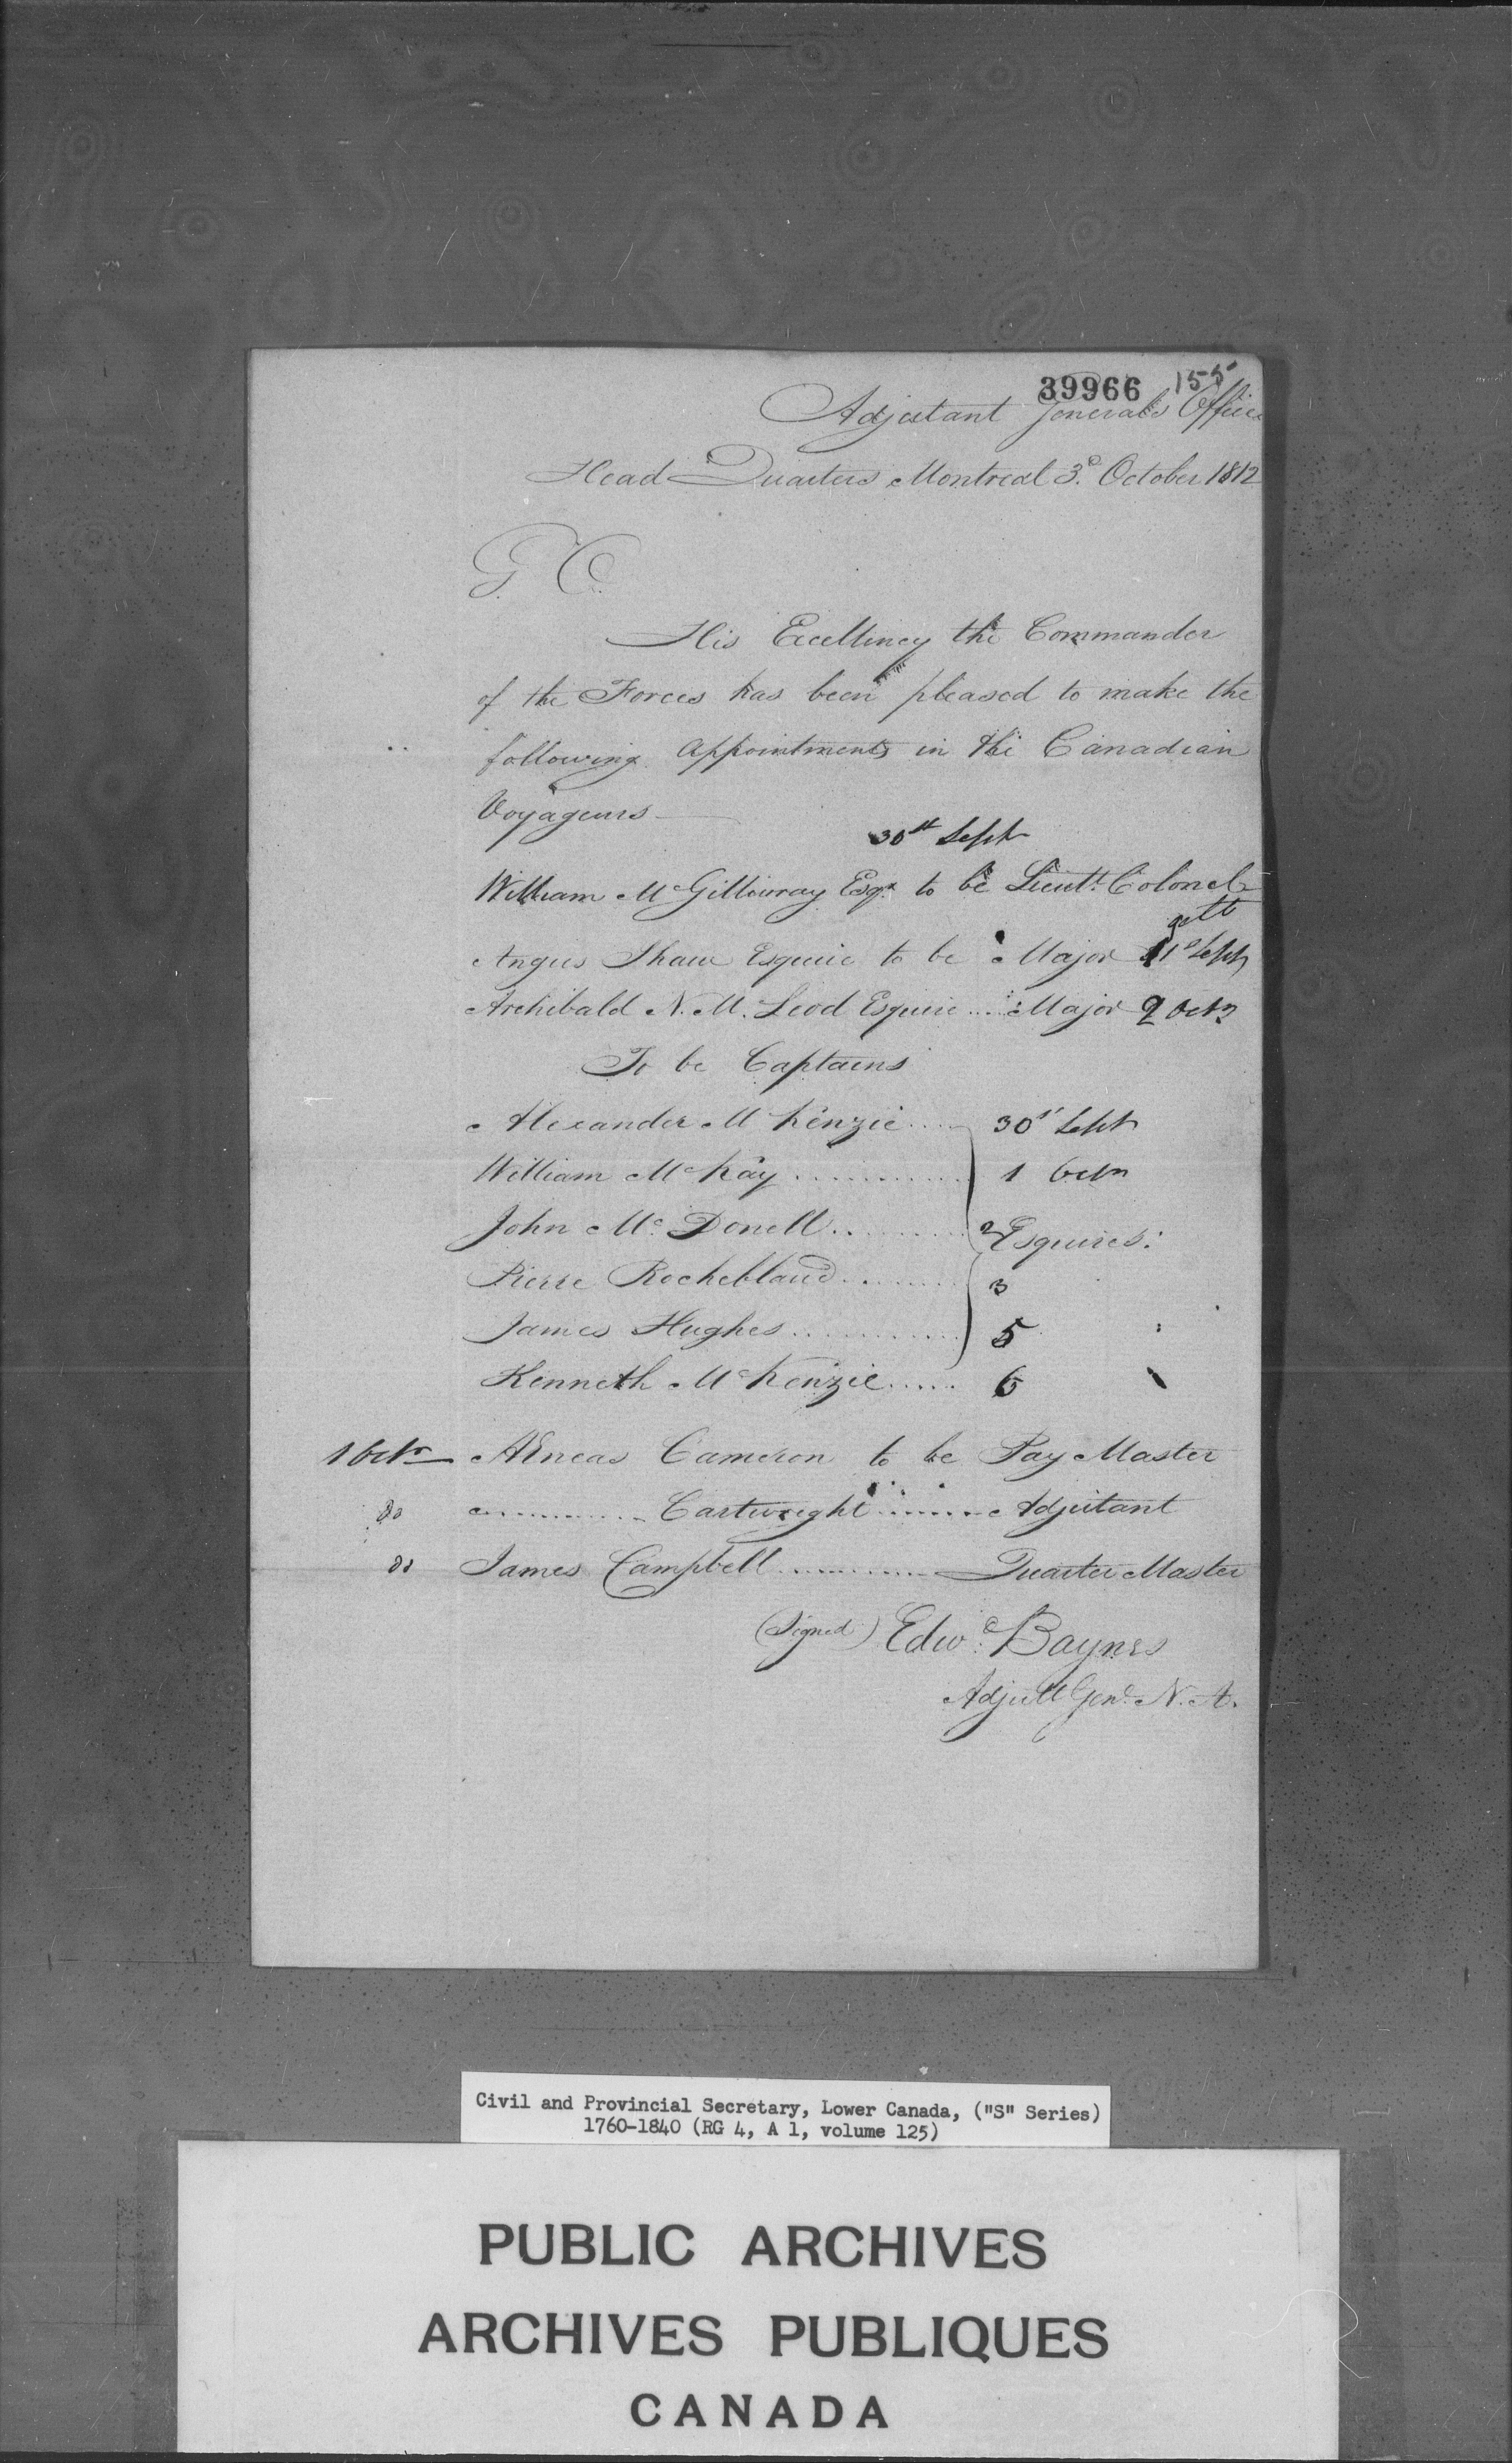 39966 155
Adjutant Generals Office
Head Quarters Montreal 3d. October 1812
G. O.
His Excellency the Commander
of the Forces has been pleased to make the
following Appointments in the Canadian
Voyageurs —
30st Sept
William McGillivray Esqr. to be Lieutt. Colonel
Angus Shaw Esquire to be Major Sept
Archibald N. M. Leod Esquire .... Major 2 Octr
To be Captains
Alexander McKenzie .... 30st Sept
William McKay .......... 1 Octr
John Mc. Donell .......... 2 Esquires:
Pierre Rocheblaud .......... 3
James Hughes .......... 5
Kenneth McKenzie ..... 6
1 Octr — Æneas Cameron to be Pay Master
do .......... Cartwright .......... Adjutant
do James Campbell .......... Quarter Master
(Signed) Edwd. Baynes
Adjutt Genl. N. A.
Civil and Provincial Secretary, Lower Canada, ("S" Series)
1760-1840 (RG 4, A 1, volume 125)
PUBLIC ARCHIVES
ARCHIVES PUBLIQUES
CANADA